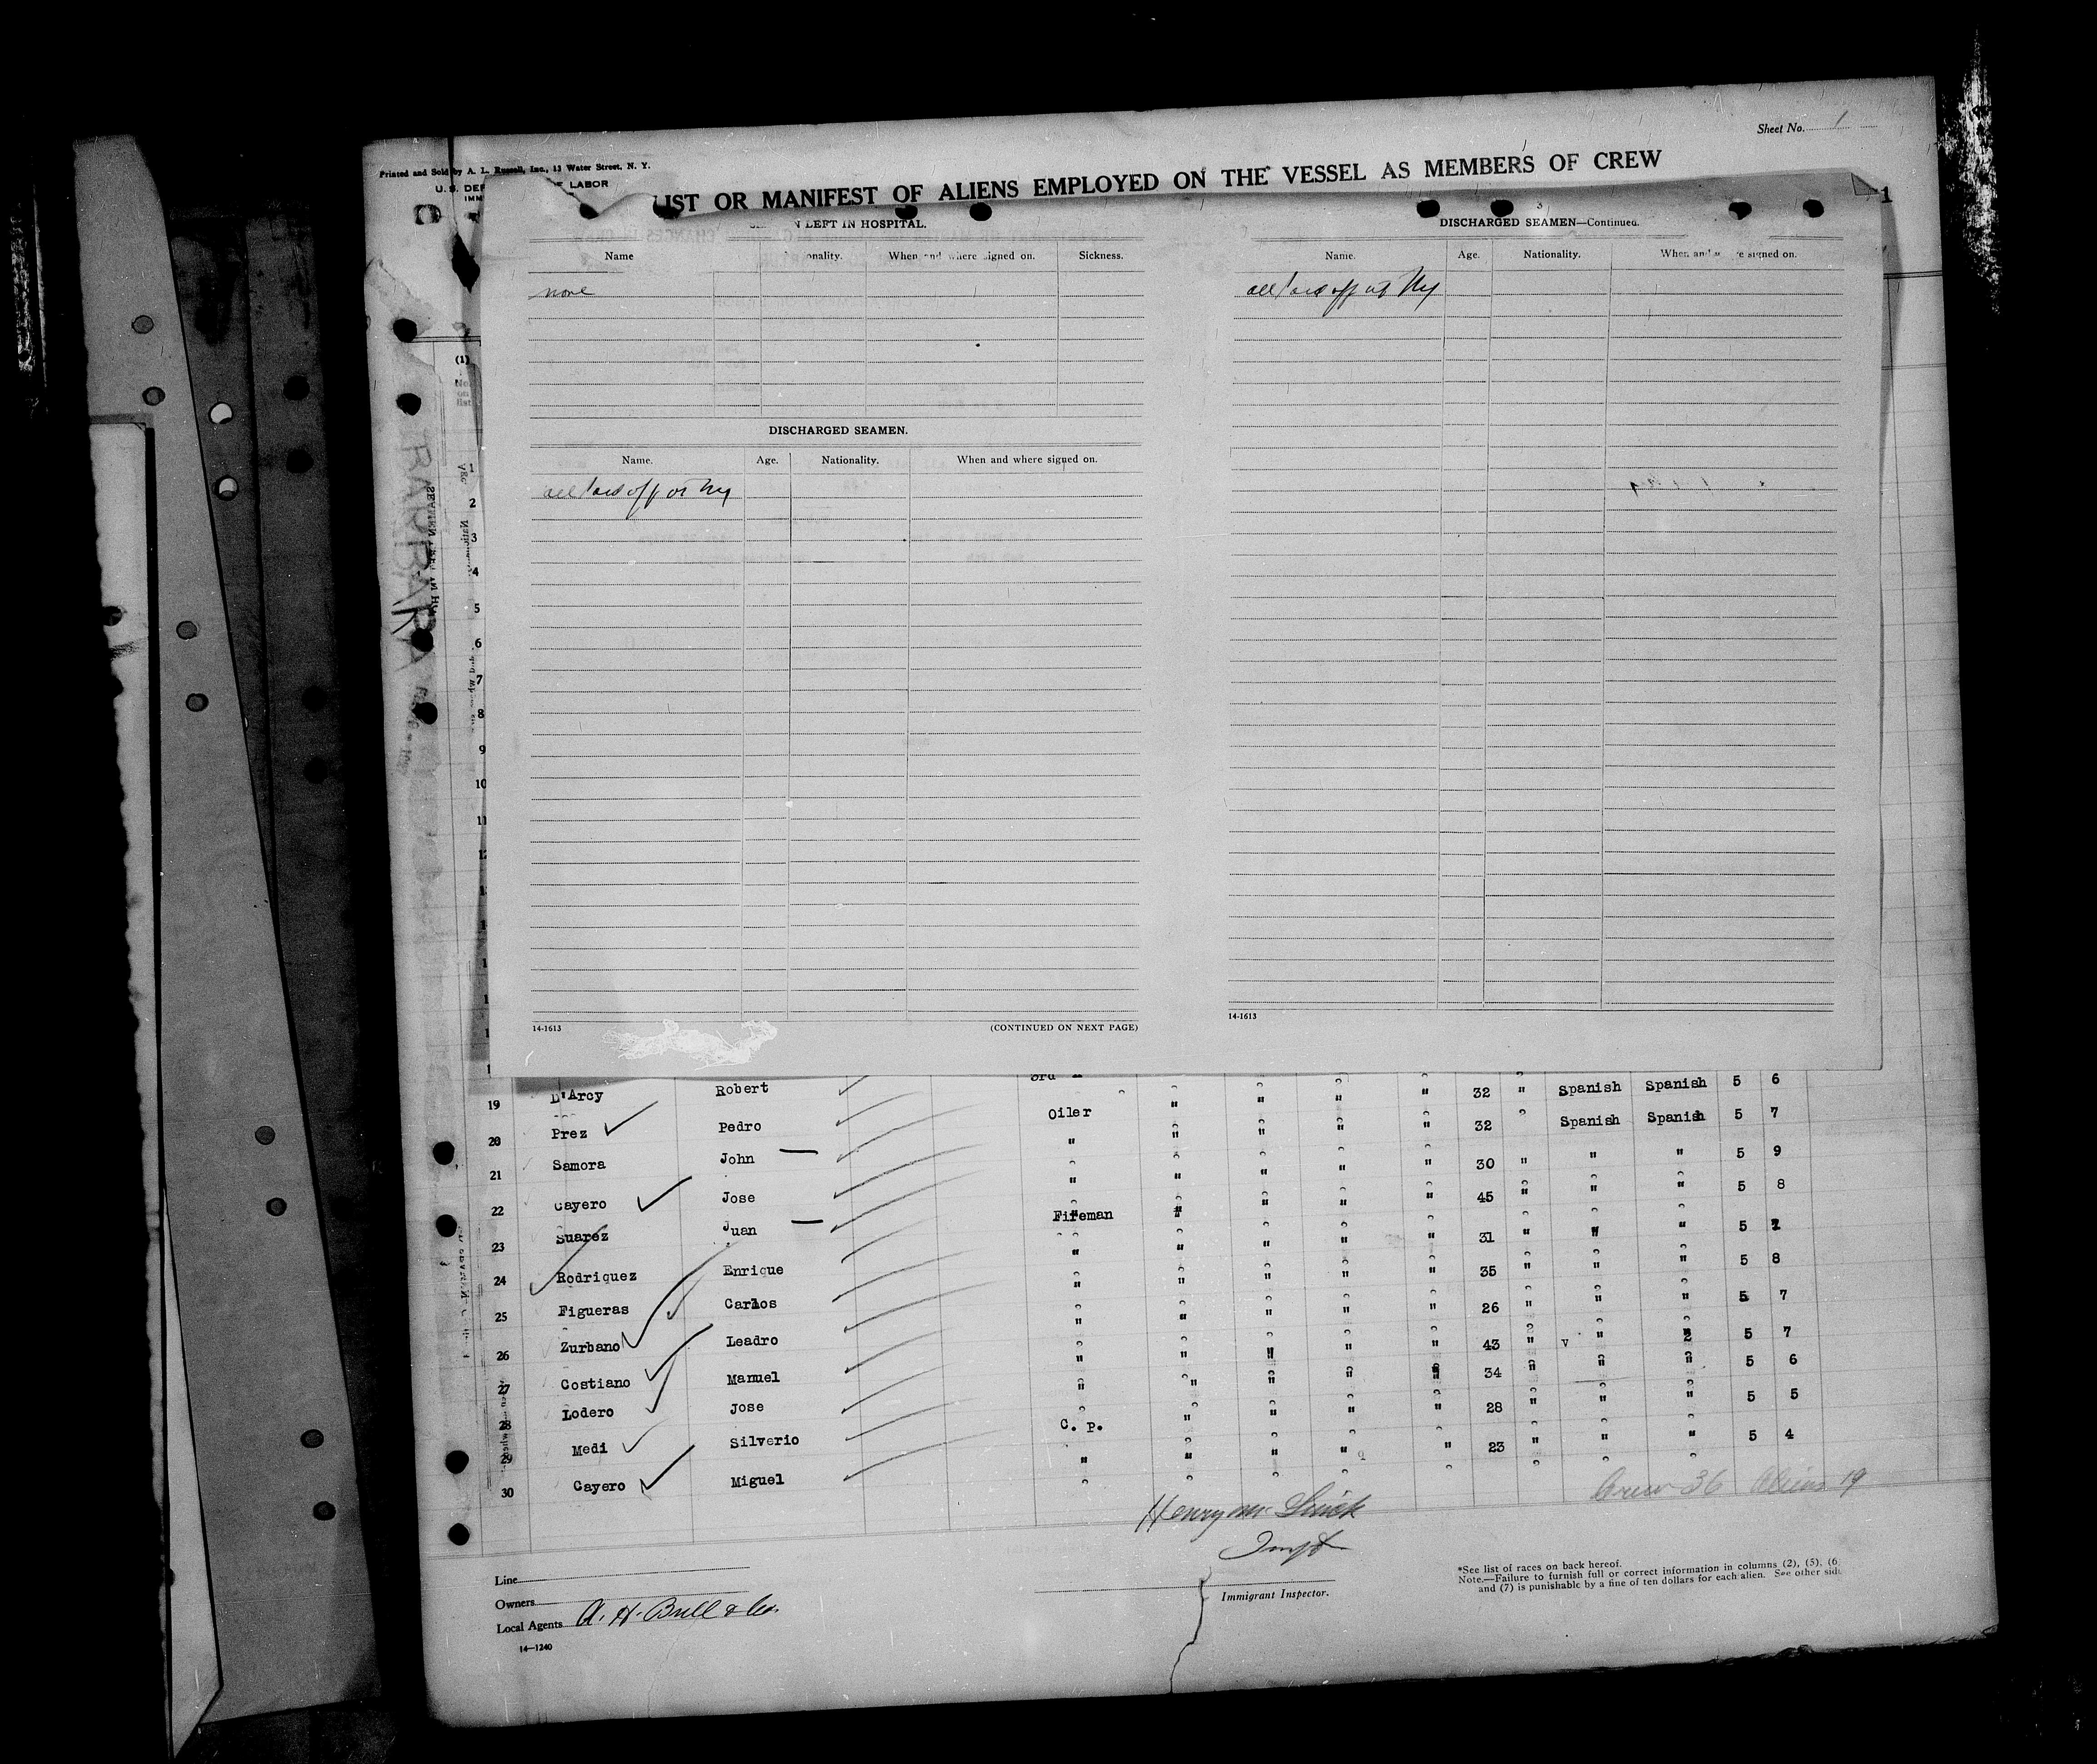 Sheet No. 1
Printed and Sold by A. L. Russell, Inc., 13 Water Street, N. Y.
LABOR
LIST OR MANIFEST OF ALIENS EMPLOYED ON THE VESSEL AS MEMBERS OF CREW
LEFT IN HOSPITAL.
Name When and where signed on. Sickness.
none
DISCHARGED SEAMEN.
Name. Age. Nationality. When and where signed on.
all paid off at Ny
14-1613 (CONTINUED ON NEXT PAGE)
DISCHARGED SEAMEN—Continued.
Name. Age. Nationality. When and signed on.
all paid off at Ny
14-1613
BARBARA
(1)
No. on list
1
2
3
4
5
6
7
8
9
10
11
19 D'Arcy Robert 3rd " " " " 32 " Spanish Spanish 5 6
20 Prez Pedro Oiler " " " " 32 " Spanish Spanish 5 7
21 Samora John " " " " " 30 " " " 5 9
22 Cayero Jose " " " " " 45 " " " 5 8
23 Suarez Juan Fireman " " " " 31 " " " 5
24 Rodriquez Enrique " " " " " 35 " " " 5 8
25 Figueras Carlos " " " " " 26 " " " 5 7
26 Zurbano Leadro " " " " " 43 " " " 5 7
27 Costiano Manuel " " " " " 34 " " " 5 6
28 Lodero Jose " " " " " 28 " " " 5 5
29 Medi Silverio C. P. " " " " 23 " " " 5 4
30 Cayero Miguel "
Crew 36 Aliens 19
Henry
Inspt
Line
Owners
Local Agents A. H. Bull & Co.
14—1240
Immigrant Inspector.
*See list of races on back hereof.
Note.—Failure to furnish full or correct information in columns (2), (5), (6
and (7) is punishable by a fine of ten dollars for each alien. See other side